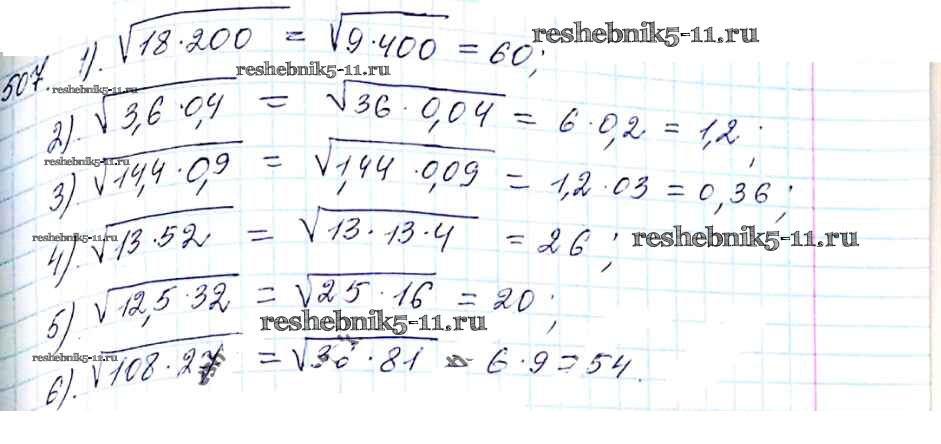 507. 1). √18·200 = √9·400 = 60; reshebnik5-11.ru
reshebnik5-11.ru
reshebnik5-11.ru
2). √3,6·0,4 = √36·0,04 = 6·0,2 = 1,2;
reshebnik5-11.ru
3) √14,4·0,9 = √1,44·0,09 = 1,2·03 = 0,36;
reshebnik5-11.ru
4). √13·52 = √13·13·4 = 26; reshebnik5-11.ru
5) √12,5·32 = √25·16 = 20;
reshebnik5-11.ru
reshebnik5-11.ru
6). √108·27 = √36·81 = 6·9 = 54.